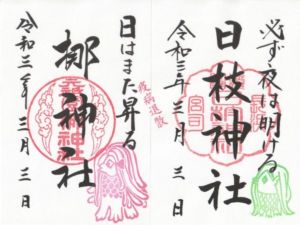 必ず夜は明ける
日枝神社
令和三年三月三日
日はまた昇る
疫病退散
梛神社
令和三年三月三日